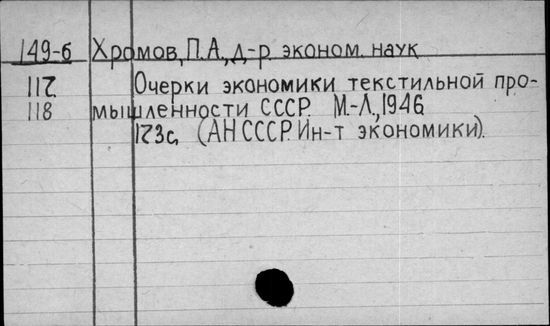 149-б Хромов, П.А., д-р. эконом. наук
117. Очерки экономики текстильной про-
118 мышленности СССР. М.-Л., 1946
173с. (АН СССР. Ин-т экономики).